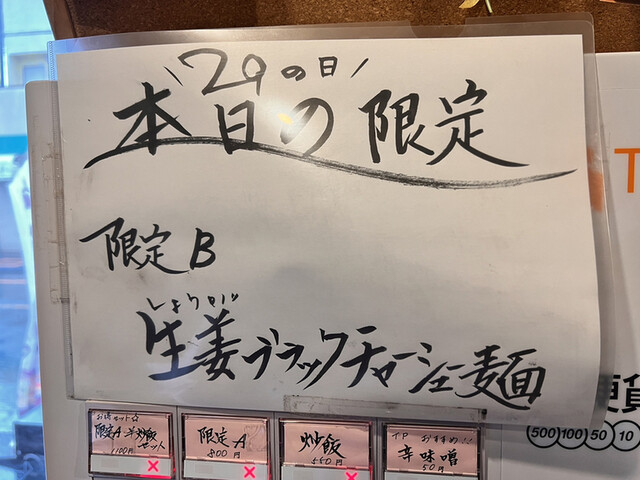 \29の日/
本日の限定
限定B
しょうが
生姜ブラックチャーシュー麺
T
硬貨
500 100 50 10
お得セット☆
限定A 半炒飯
セット
1100円
×
限定A
800円
×
炒飯
550円
×
TP おすすめ!!
辛味噌
50円